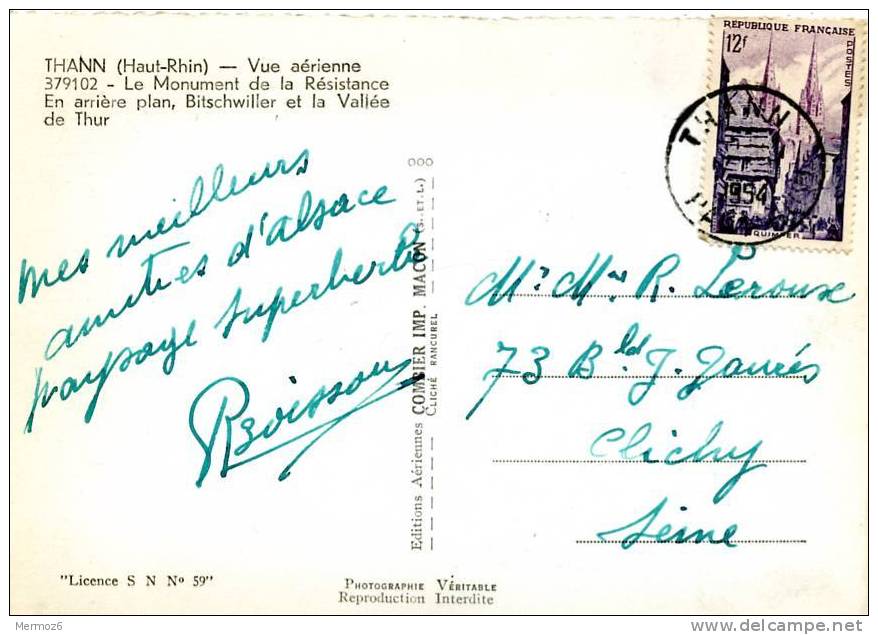 THANN (Haut-Rhin) — Vue aérienne
379102 - Le Monument de la Résistance
En arrière plan, Bitschwiller et la Vallée
de Thur
Mes meilleurs
amitiés d'Alsace
paysage superberbe
RBoisson
"Licence S N Nº 59"
Editions Aériennes COMBIER IMP. MACON (S.-ET-L.)
CLICHÉ RANCUREL
PHOTOGRAPHIE VÉRITABLE
Reproduction Interdite
RÉPUBLIQUE FRANÇAISE
12f
POSTES
QUIMPER
THANN
1954
Mr. Mme R. Leroux
73 Bld J. Jaurés
Clichy
Seine
Mermoz26
www.delcampe.net